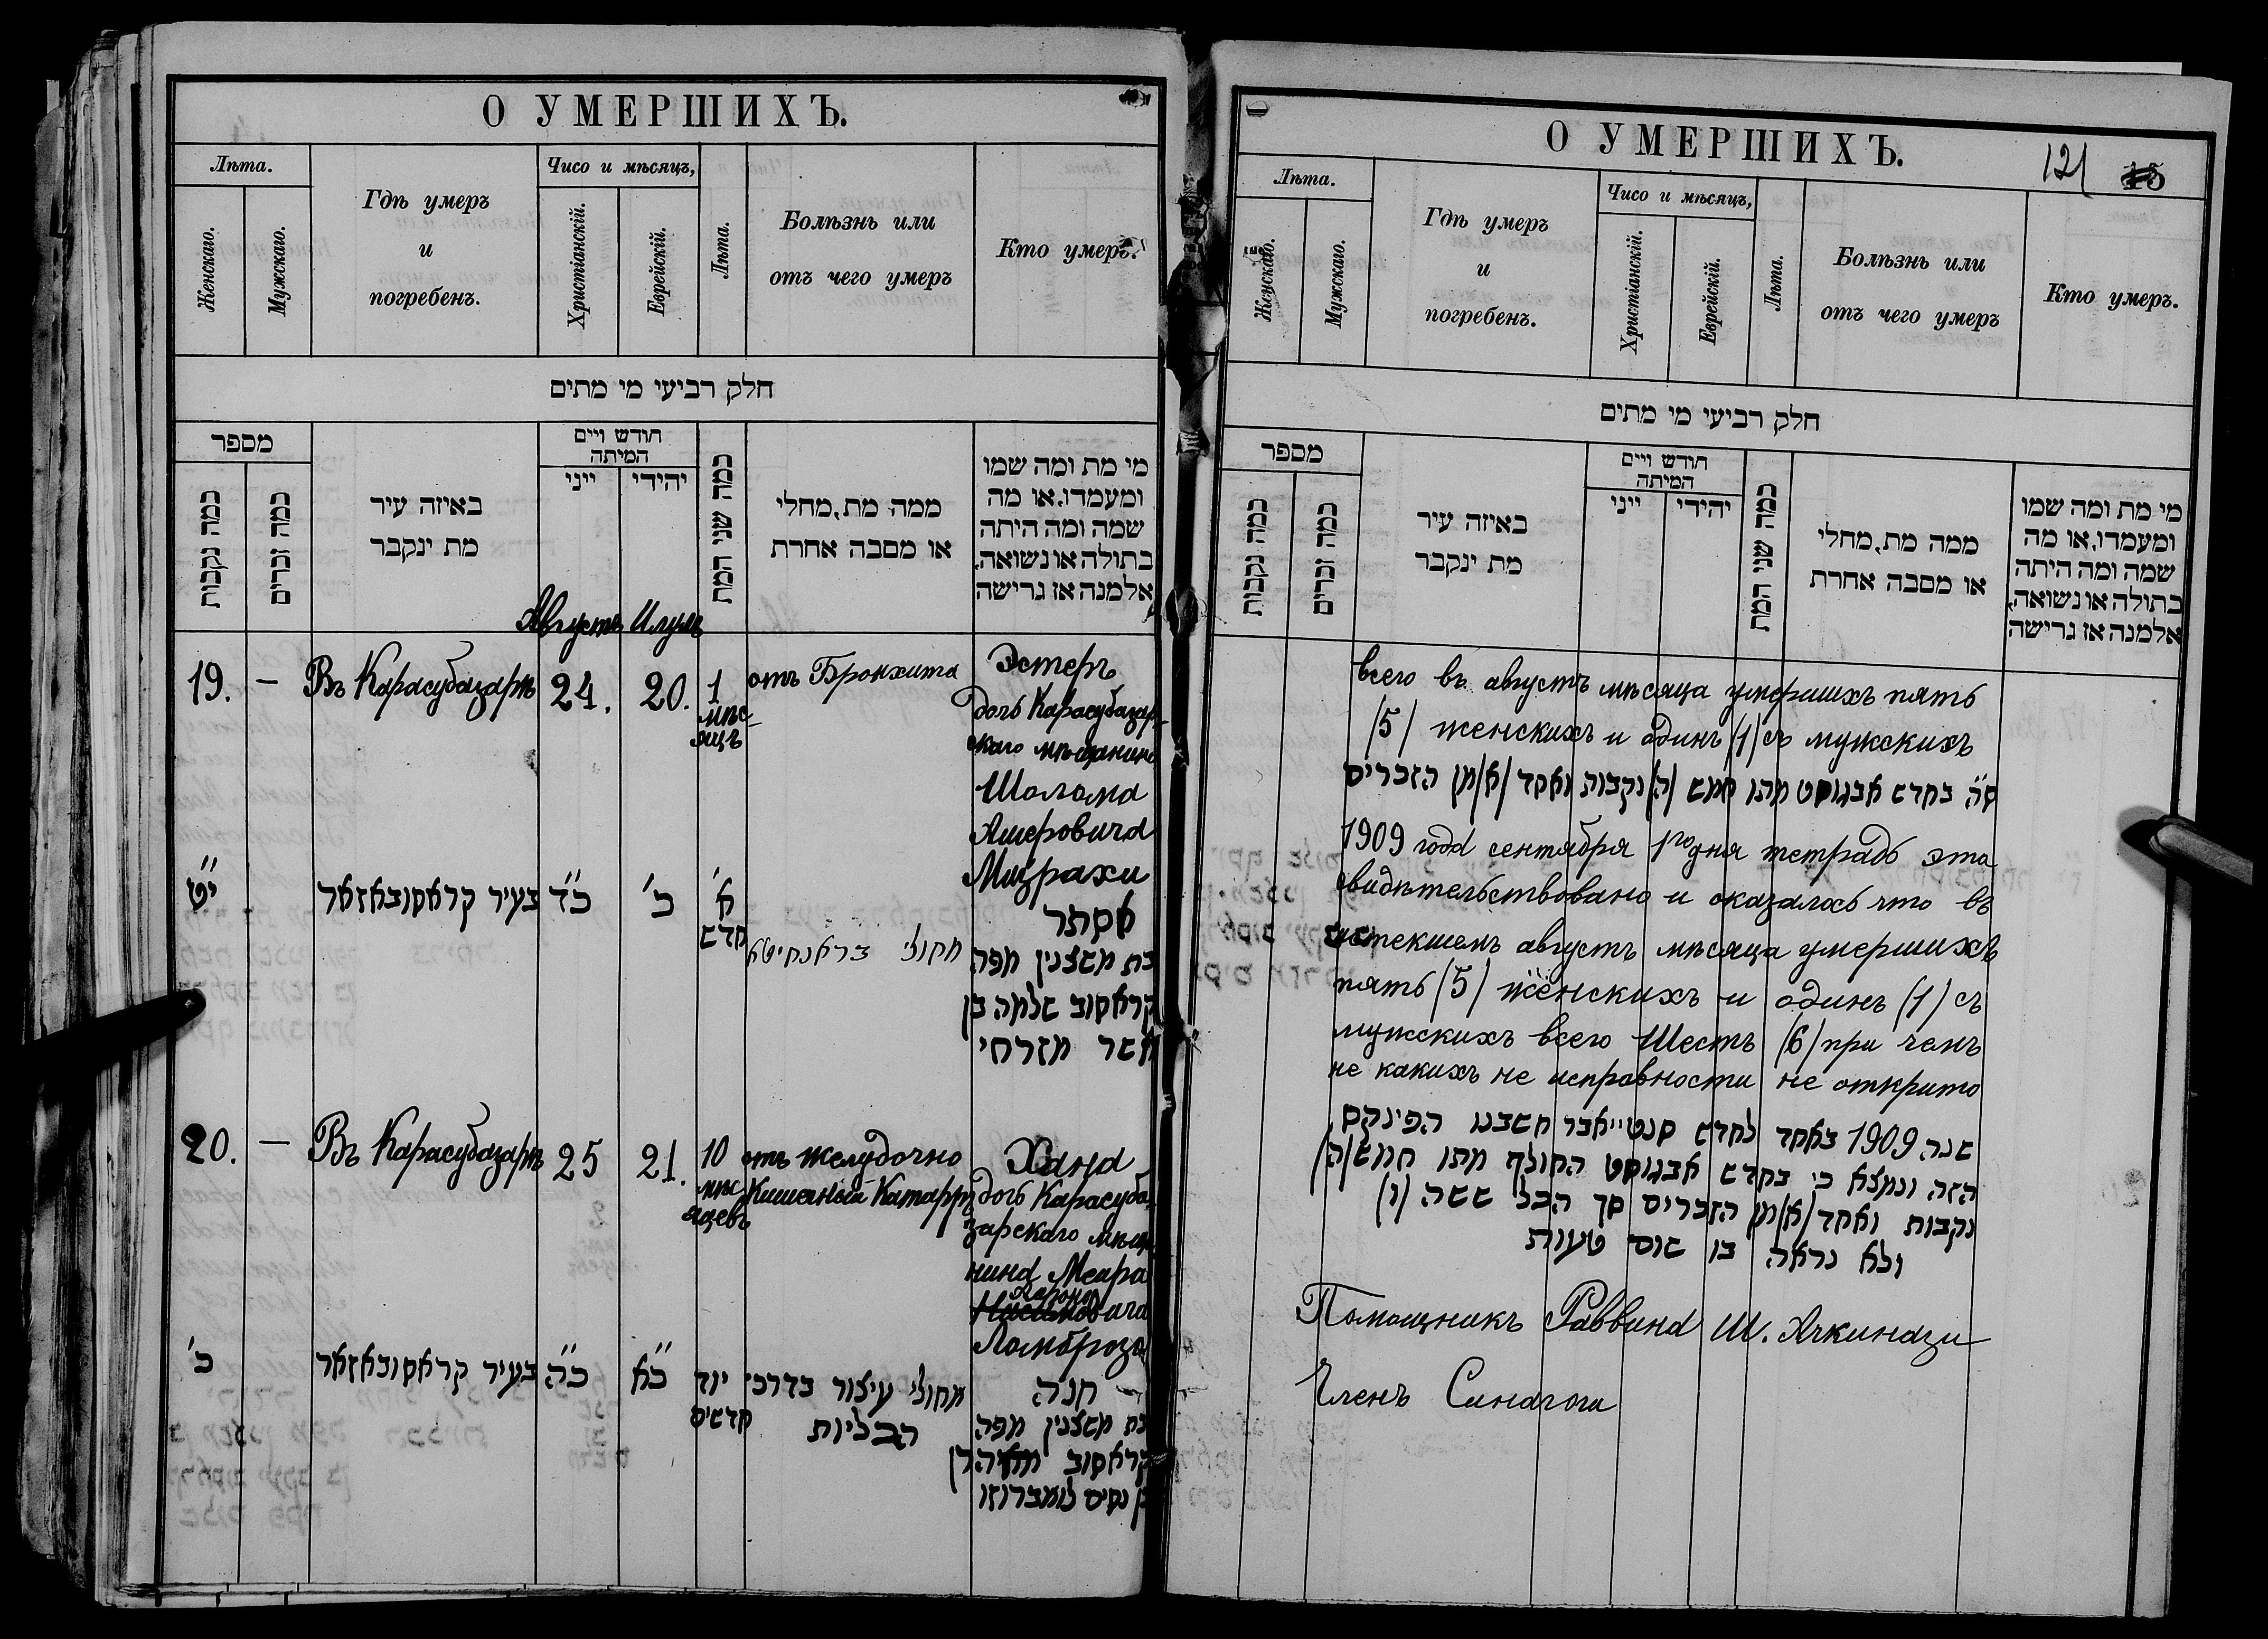 О УМЕРШИХЪ.
Лѣта.
Женскаго.
Мужскаго.
Гдѣ умеръ
и
погребенъ.
Чисо и мѣсяцъ,
Христіанскій.
Еврейскій.
Лѣта.
Болѣзнь или
отъ чего умеръ
Кто умеръ.
חלק רביעי מי מתים
מספר
כמה נקבות
כמה זכרים
באיזה עיר
מת ינקבר
חודש ויים
המיתה
ייני
יהידי
כמה שני המת
ממה מת, מחלי
או מסבה אחרת
מי מת ומה שמו
ומעמדו, או מה
שמה ומה היתה
בתולה או נשואה,
אלמנה אז גרישה
Августъ Илулъ
19. — Въ Карасубазарѣ 24. 20. 1
мѣс-
яцъ
отъ Бронхита
Эстеръ
дочь Карасубазар-
скаго мѣщанина
Шолома
Ашеровича
Мизрахи
י"ט בעיר קראסובאזאר כ"ד כ' א'
חדש
מחולי בראנחיטא
אסתר
בת משצנין מפה
קראסוב שלמה בן
אשר מזרחי
20. — Въ Карасубазарѣ 25 21. 10
мѣс
яцевъ
отъ желудочно
Кишечный Катарръ
Хана
дочь Карасуба-
зарскаго мѣща-
нина Меара
Ломброзо
כ' בעיר קראסובאזאר כ"ה כ"א יוד
חדשים
מחולי עיצור בדרכי
הבליות
חנה
בת משצנין מפה
קראסוב
בן נסים לומברוזו
О УМЕРШИХЪ.
121 15
Лѣта.
Женскаго.
Мужскаго.
Гдѣ умеръ
и
погребенъ.
Чисо и мѣсяцъ,
Христіанскій.
Еврейскій.
Лѣта.
Болѣзнь или
отъ чего умеръ
Кто умеръ.
חלק רביעי מי מתים
מספר
כמה נקבות
כמה זכרים
באיזה עיר
מת ינקבר
חודש ויים
המיתה
ייני
יהידי
כמה שני המת
ממה מת, מחלי
או מסבה אחרת
מי מת ומה שמו
ומעמדו, או מה
שמה ומה היתה
בתולה או נשואה,
אלמנה אז גרישה
всего въ августъ мѣсяца умершихъ пять
(5) женскихъ и одинъ (1) съ мужскихъ
ס"ה בחדש אבגוסט מתו חמש (ה) נקבות ואחד (א) מן הזכרים
1909 года сентября 1го дня тетрадь эта
свидѣтельствовано и оказалось что въ
истекшемъ августъ мѣсяца умершихъ
пять (5) женскихъ и одинъ (1) съ
мужскихъ всего Шесть (6) при чемъ
не какихъ не исправности не открыто
שנה 1909 באחד לחדש סנטייאבר חשבנו הפינקס
הזה ונמצא כי בחדש אבגוסט החולף מתו חמש (ה)
נקבות ואחד (א) מן הזכרים סך הכל ששה (ו)
ולא נראה בו שום טעות
Помощникъ Раввина Ш. Ачкинази
Членъ Синагоги